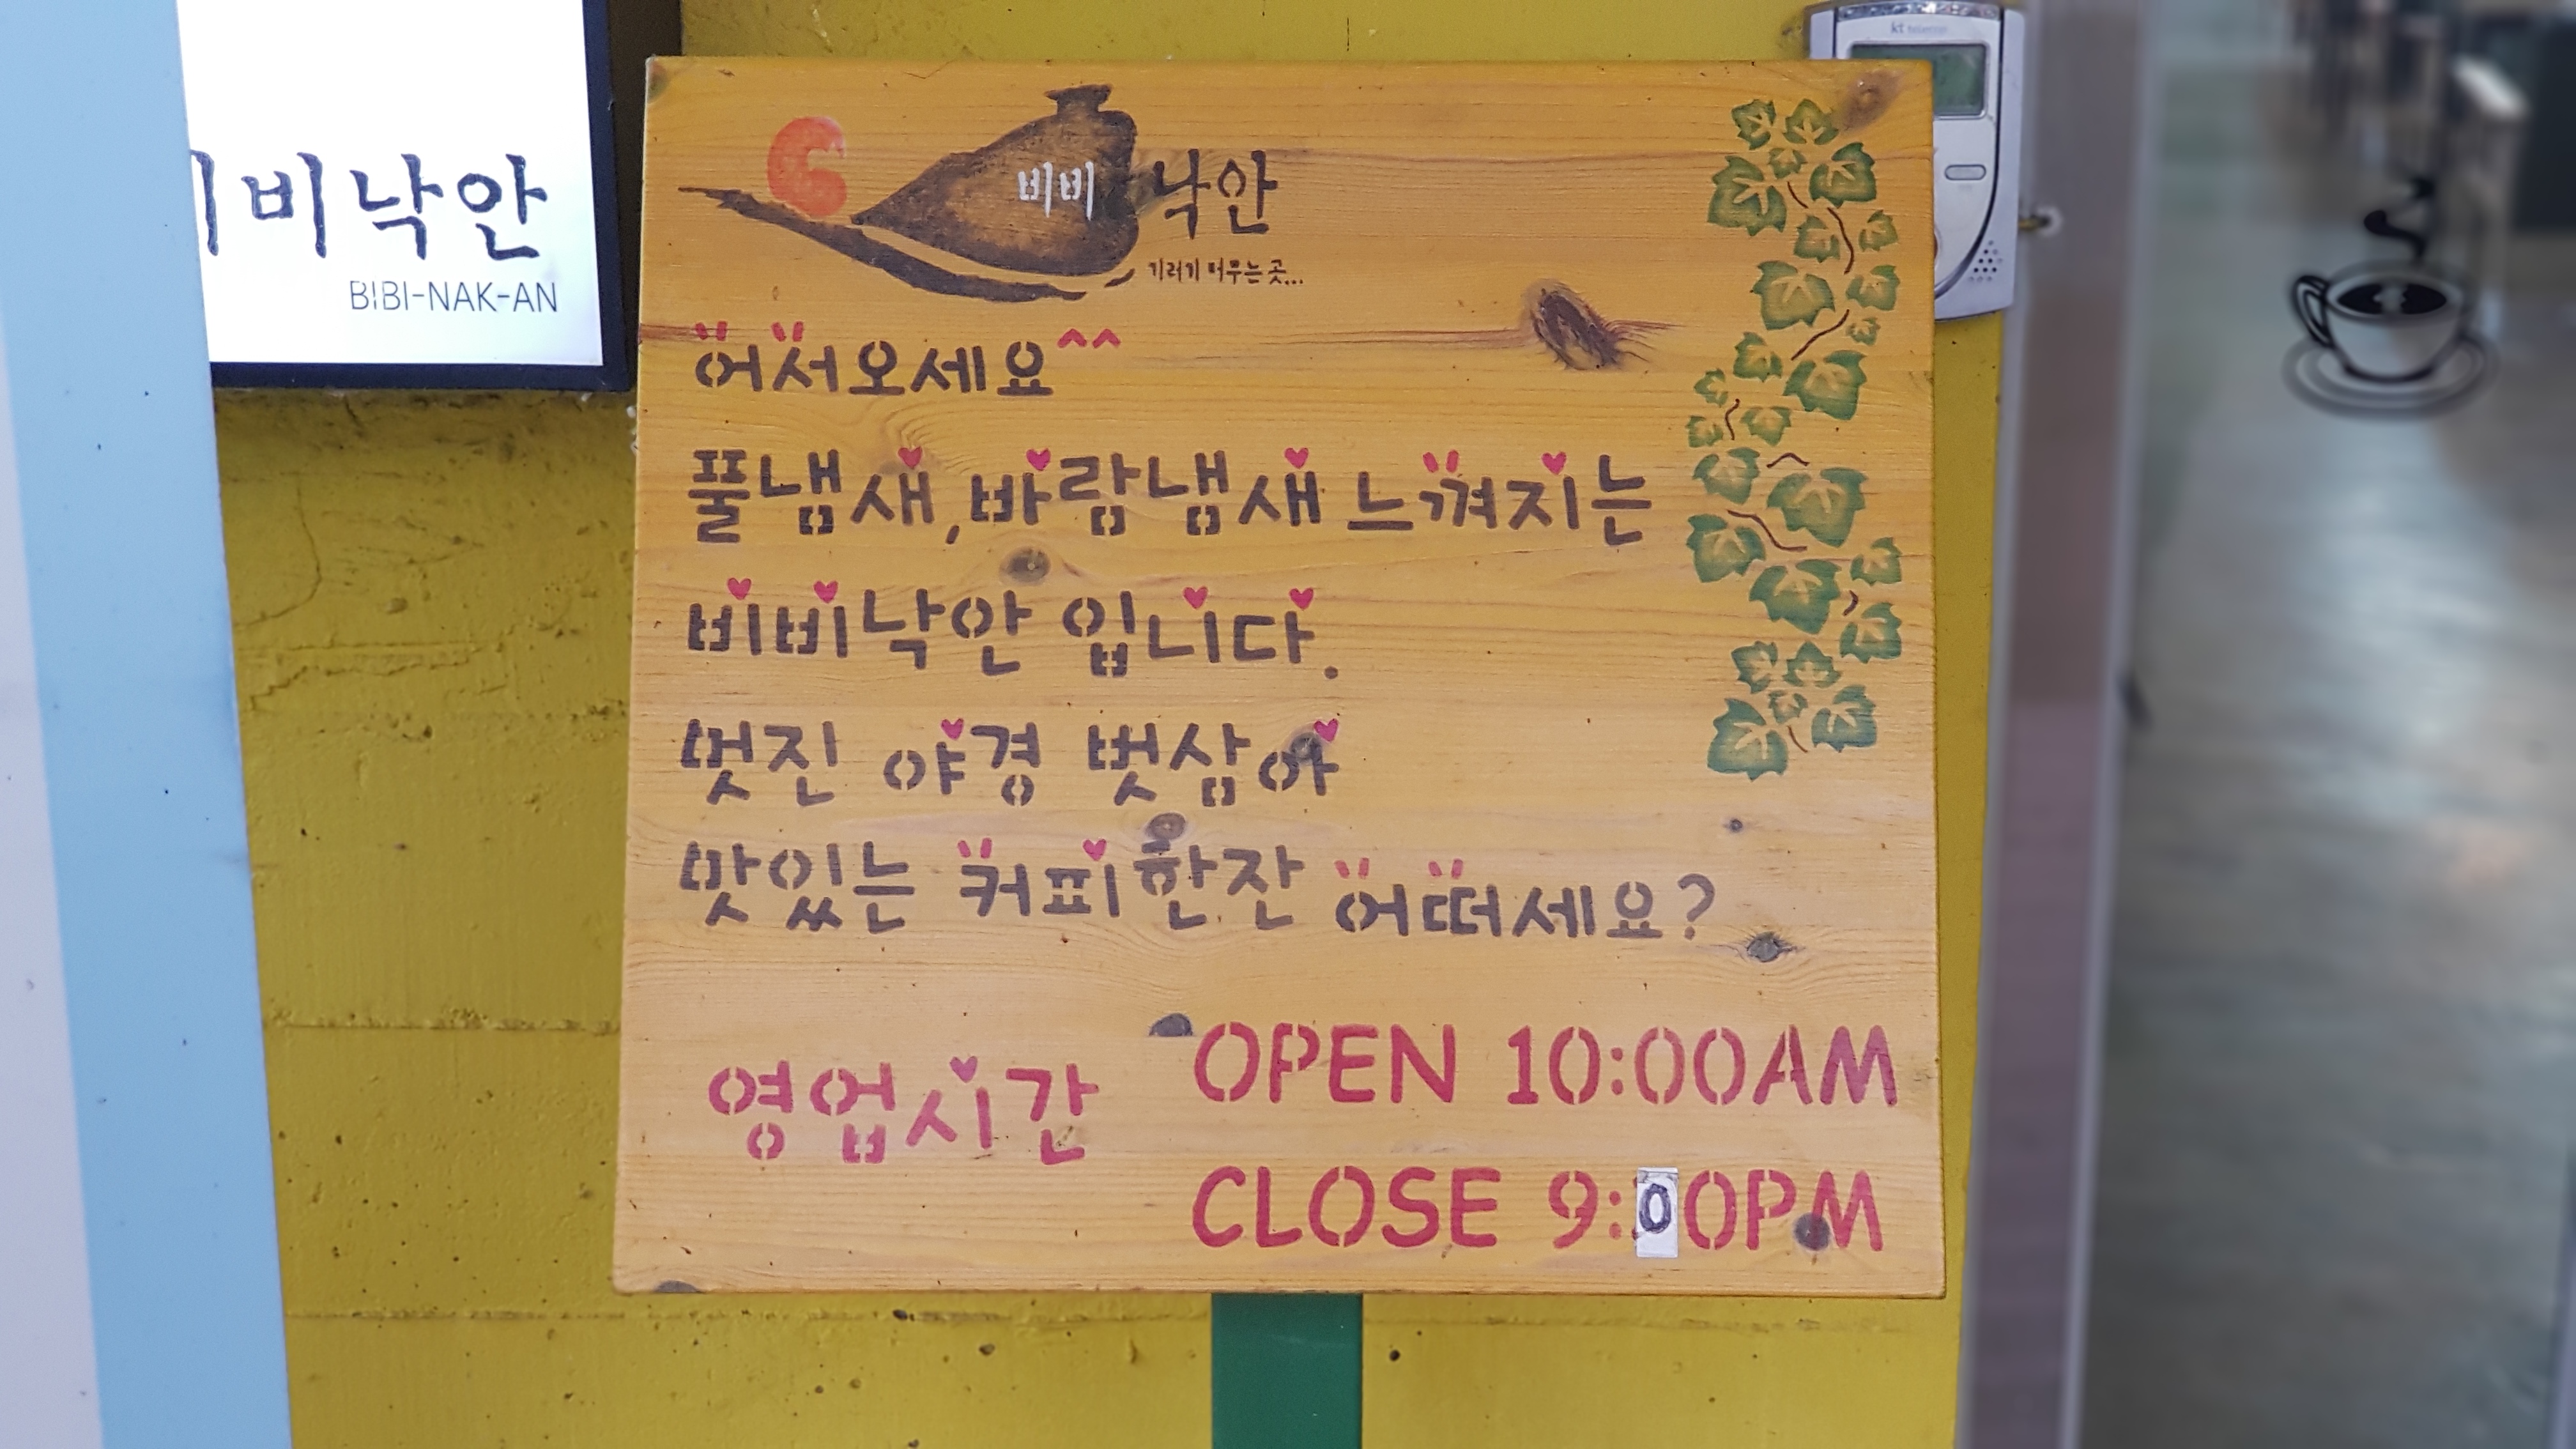 비비낙안
BIBI-NAK-AN
kt telecop
비비낙안
기러기 머무는 곳...
어서오세요^^
풀냄새,바람냄새 느껴지는
비비낙안 입니다.
멋진 야경 벗삼아
맛있는 커피한잔 어떠세요?
영업시간
OPEN 10:00AM
CLOSE 9:00PM